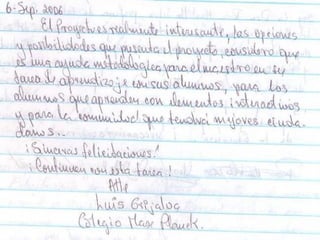 6. Sep. 2006
El Proyecto es realmente interesante, las opciones
y posibilidades que presenta el proyecto, considero que
es una ayuda metodologica para el maestro en su
tarea de aprendizaje con sus alumnos, para los
alumnos que aprenden con elementos
y para la comunidad que tendra mejores ciuda
danos..
¡Sinceras felicitaciones!
¡Continuen con esta tarea!
Atte
Luis Grijalva
Colegio Max Planck.